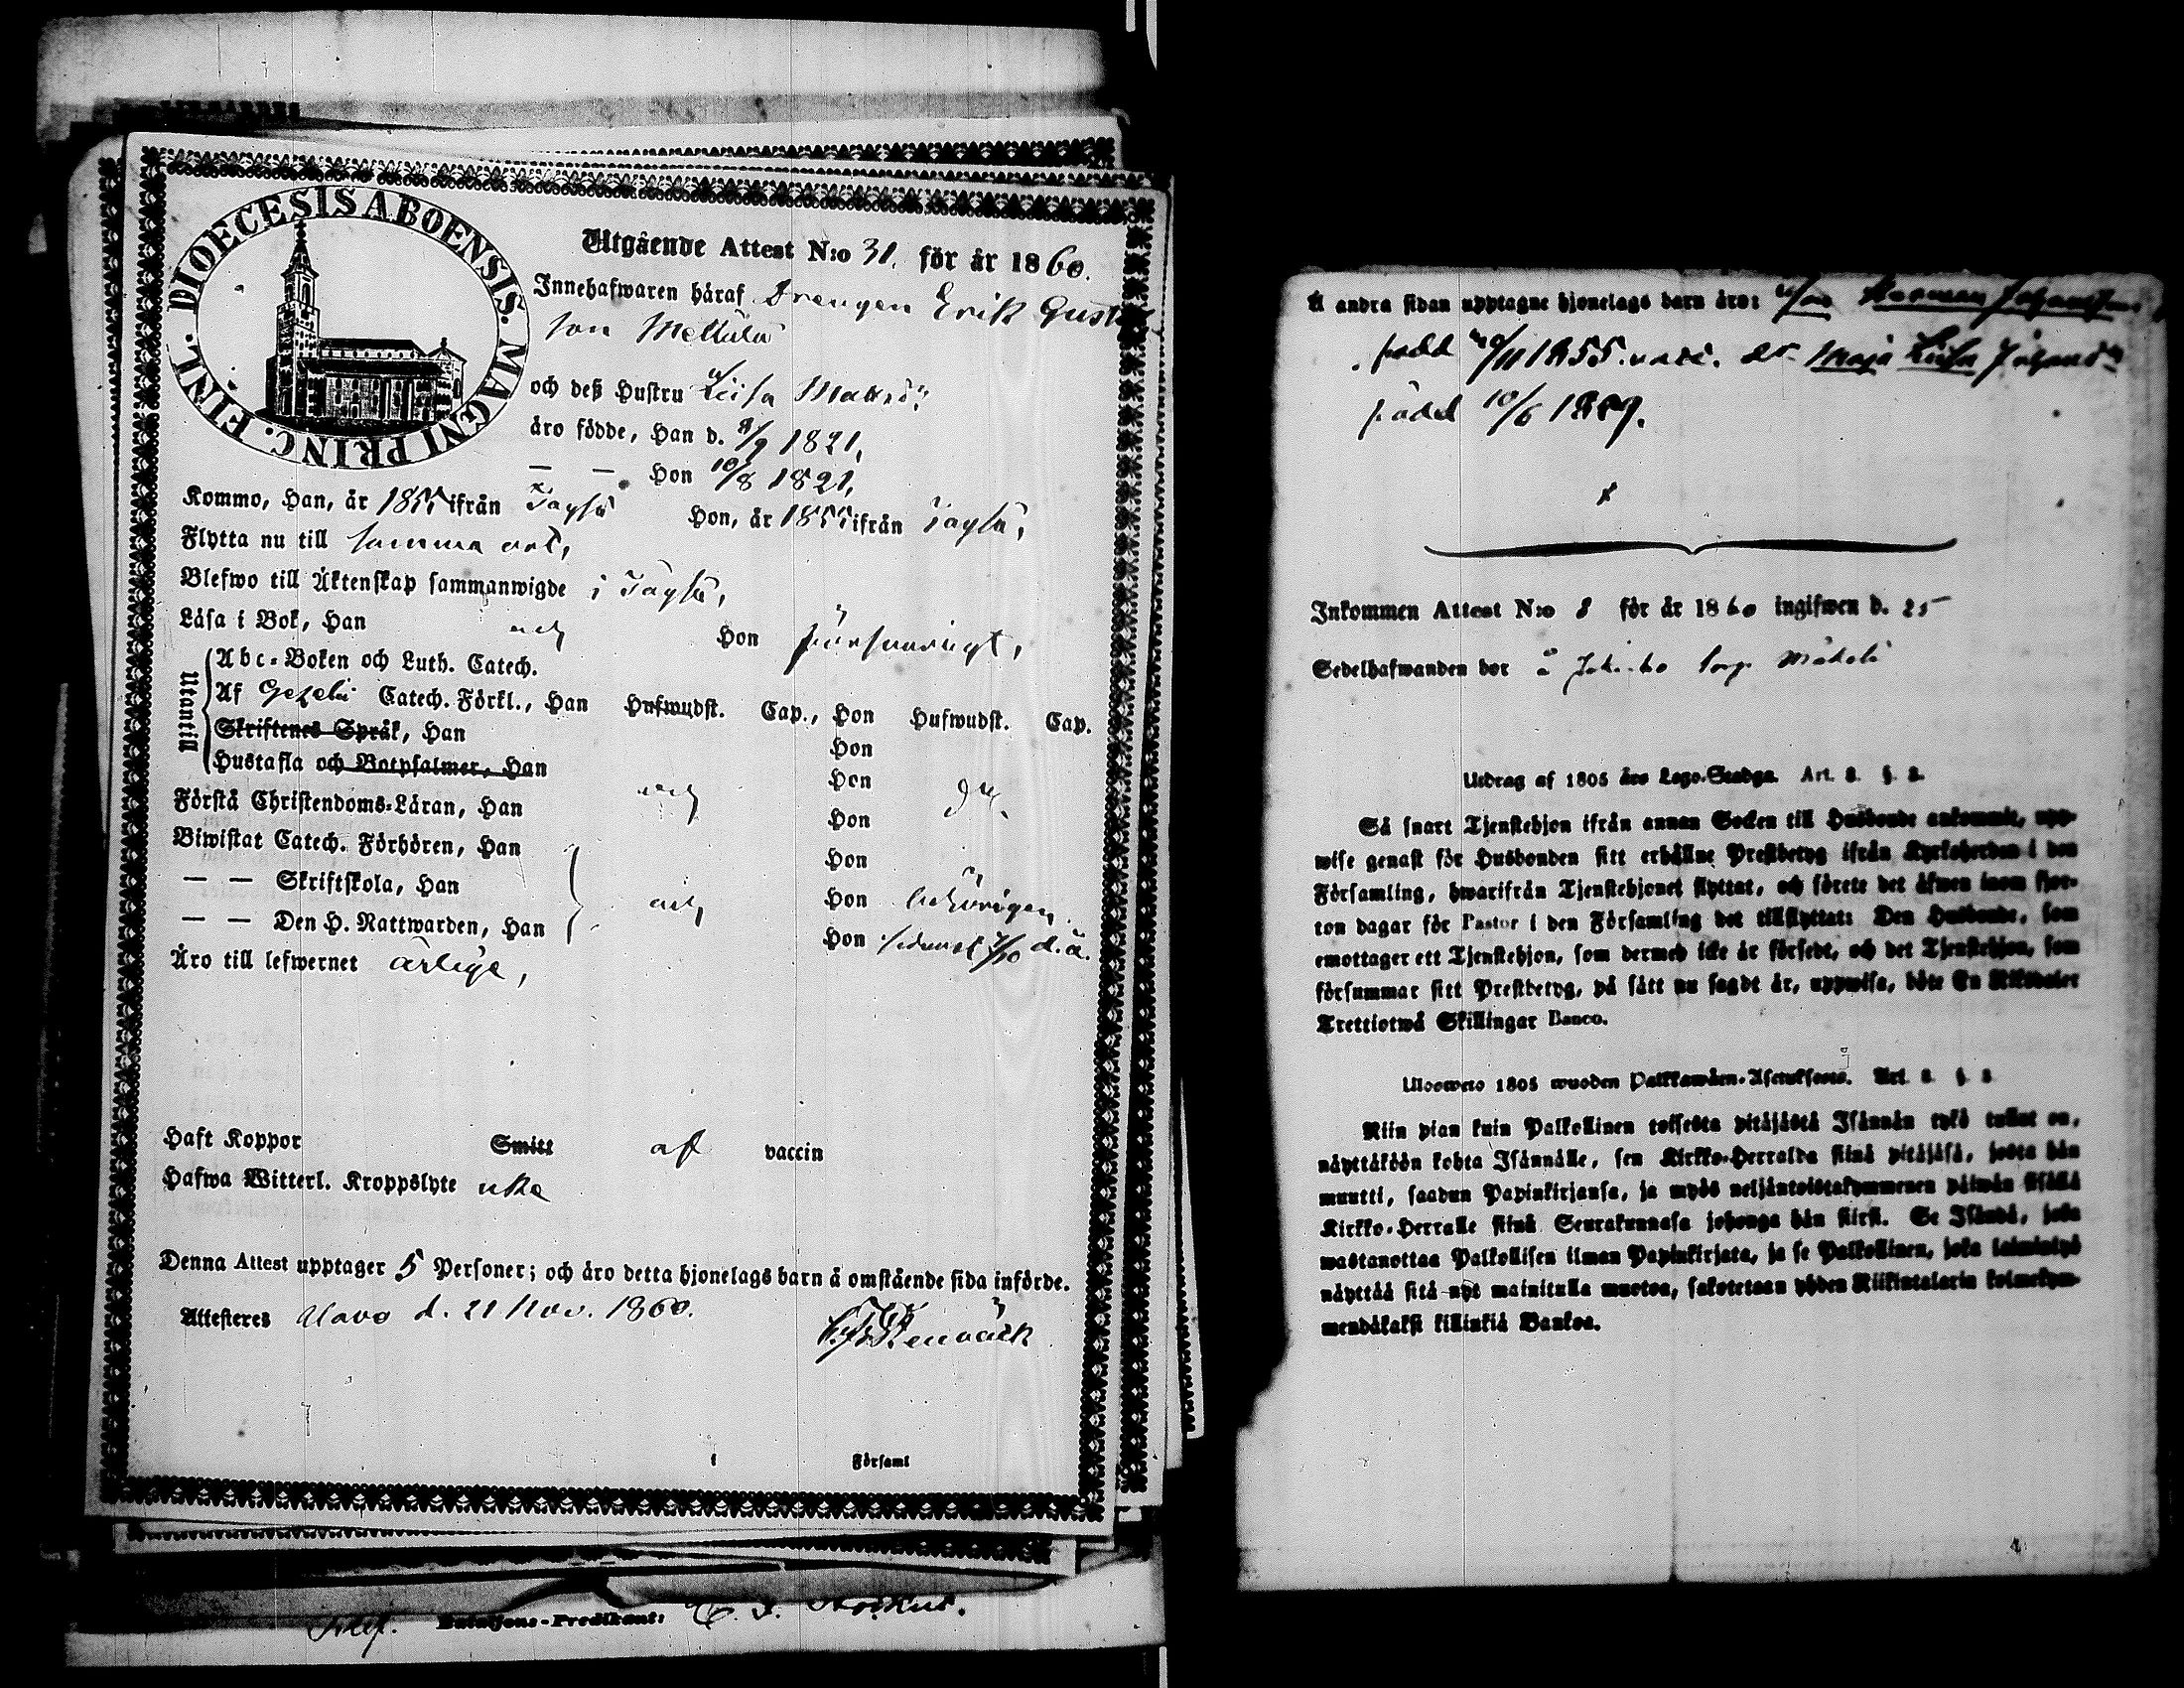 DIOECESIS ABOENSIS. MAGNI PRINC. FINL.
Utgående Attest N:o 31. för år 1860.
Innehafwaren häraf Drengen Erik Gust
son
och deß Hustru Liisa Mattsdr
äro födde, Han d. /9 1821,
— — Hon 10/8 1821,
Kommo, Han, år 1855 ifrån Töysä Hon, år 1855 ifrån Töysä,
Flytta nu till samma ort,
Blefwo till Äktenskap sammanwigde i Töysä,
Läsa i Bok, Han och Hon försvarligt,
Utantill
Abc-Boken och Luth. Catech.
Af Gezelii Catech. Förkl., Han Hufwudst. Cap., Hon Hufwudst. Cap.
Skriftenes Språk, Han Hon
Hustafla och Botpsalmer, Han Hon
Förstå Christendoms-Läran, Han och Hon
Biwistat Catech. Förhören, Han Hon
— — Skriftskola, Han och Hon behörigen
— — Den H. Nattwarden, Han Hon senast 7/10 d. å.
Äro till lefwernet ärlige,
Haft Koppor Smitt af vaccin
Hafwa Witterl. Kroppslyte icke
Denna Attest upptager 5 Personer; och äro detta hjonelags barn å omstående sida införde.
Attesteres Alavo d. 21 Nov. 1860.
i Församl
Bataljons-Predikant:
Å andra sidan upptagne hjonelags barn äro: Herman Johannes
född /11 1855. vacc. dr Maja Liisa Johanna
född 10/6 1859.
Inkommen Attest N:o 8 för år 1860 ingifwen d. 25
Sedelhafwanden bor å torp Mäkelä
Utdrag af 1805 års Lego-Stadga. Art. 8. §. 8.
Så snart Tjenstehjon ifrån annan Socken till Husbonde ankommit, upp-
wise genast för Husbonden sitt erhållne Prestbetyg ifrån Kyrkoherden i den
Församling, hwarifrån Tjenstehjonet flyttat, och förete det äfwen inom fjor-
ton dagar för Pastor i den Församling det tillflyttat: Den Husbonde, som
emottager ett Tjenstehjon, som dermed icke är försedt, och det Tjenstehjon, som
försummar sitt Prestbetyg, på sätt nu sagdt är, uppwisa, böte En Riksdaler
Trettiotwå Skillingar Banco.
Uloswето 1805 wuoden Palkkawäen-Asetuksesta. Art. 8. §. 8.
Niin pian kuin Palkollinen toisesta pitäjästä Isännän tykö tullut on,
näyttäköön kohta Isännälle, sen Kirkko-Herralda siinä pitäjäsä, josta hän
muutti, saadun Papinkirjansa, ja myös neljäntoistakymmenen päiwän sisällä
Kirkko-Herralle siinä Seurakunnasa johonga hän siirsi. Se Isändä, joka
wastanottaa Palkollisen ilman Papinkirjata, ja se Palkollinen, joka laiminlyö
näyttää sitä nyt mainitulla muotoa, sakotetaan yhden Riikintalarin kolmekym-
mendäkaksi killinkiä Bankoa.